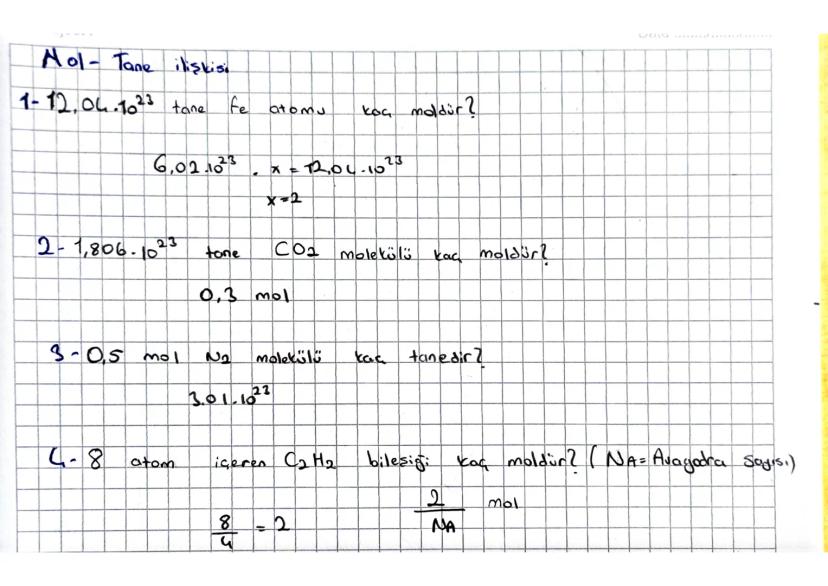 Mol - Tane ilişkisi
1- 12,04.10²³ tane Fe atomu kaç moldür?
6,02.10²³ . x = 12,04.10²³
x=2
2- 1,806.10²³ tane CO2 molekülü kaç moldür?
0,3 mol
3- 0,5 mol N2 molekülü kaç tanedir?
3.01.10²³
4- 8 atom içeren C2H2 bileşiği kaç moldür? (NA= Avagadra Sayısı)
8/4 = 2 2/NA mol